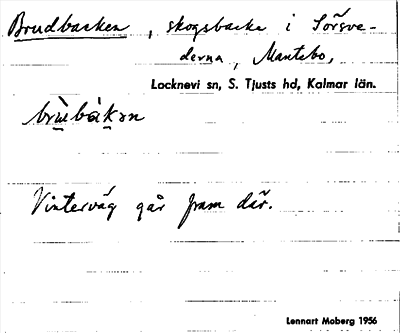 Brudbacken, skogsbacke i Sörsve-
derna, Mantebo,
Locknevi sn, S. Tjusts hd, Kalmar län.
Vinterväg går fram där.
Lennart Moberg 1956